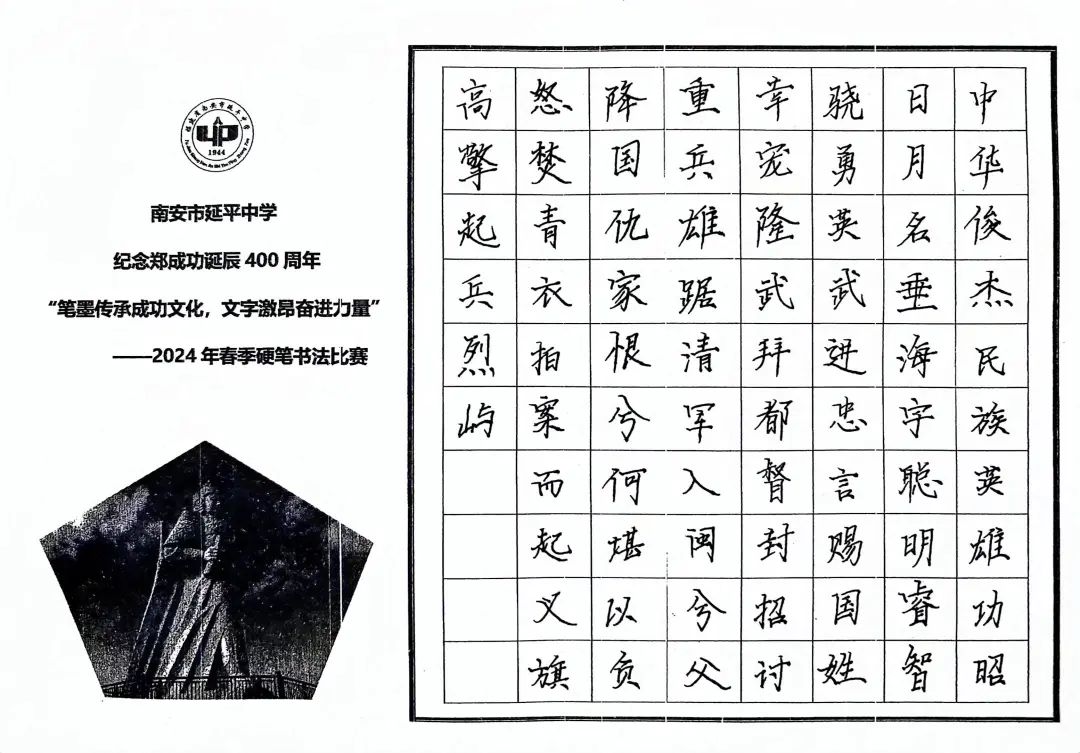 福建省南安市延平中学
1944
南安市延平中学
纪念郑成功诞辰 400 周年
“笔墨传承成功文化，文字激昂奋进力量”
——2024 年春季硬笔书法比赛
中华俊杰民族英雄功昭
日月名垂海宇聪明睿智
骁勇英武进忠言赐国姓
幸宠隆武拜都督封招讨
重兵雄踞清军入闽兮父
降国仇家恨兮何堪以负
怒焚青衣拍案而起义旗
高擎起兵烈屿